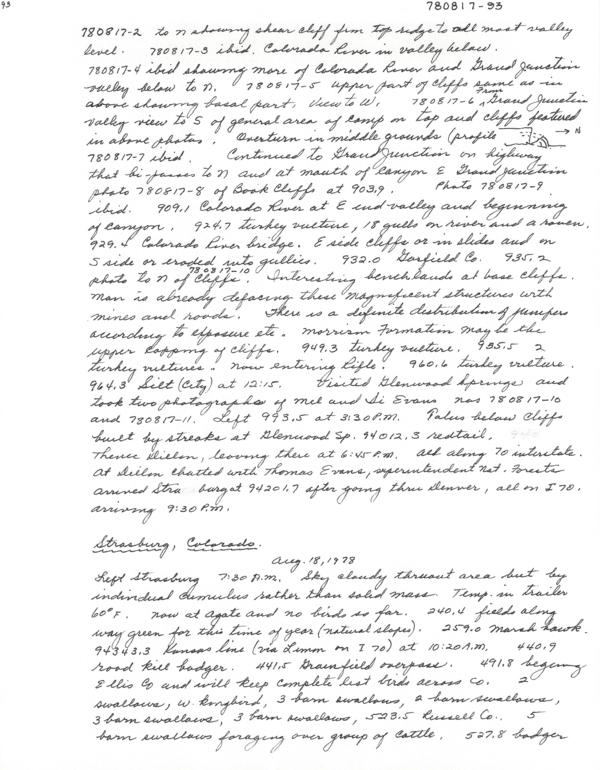 93
780817-93
780817-2 to N showing shear cliff from top ridge to all most valley
level. 780817-3 ibid. Colorado River in valley below.
780817-4 ibid showing more of Colorado River and Grand Junction
valley below to N. 780817-5 upper part of cliffs same as in
above showing basal part, view to W. 780817-6 From Grand Junction
valley view to S of general area of camp on top and cliffs featured
in above photos. Overturn in middle grounds (profile → N
780817-7 ibid. Continued to Grand Junction on highway
that bi-passes to N and at mouth of Canyon E Grand Junction
photo 780817-8 of Book Cliffs at 903.9. Photo 780817-9
ibid. 909.1 Colorado River at E end valley and beginning
of canyon. 924.7 turkey vulture, 18 gulls on river and a raven.
929.4 Colorado River bridge. E side cliffs or in slides and on
S side or eroded into gullies. 932.0 Garfield Co. 935.2
photo to N of Cliffs. 780817-10 Interesting benchlands at base cliffs.
Man is already defacing these magnificent structures with
mines and roads. There is a definite distribution of junipers
according to exposure etc. Morrison Formation may be the
upper capping of cliffs. 949.3 turkey vulture. 955.5 2
turkey vultures. Now entering Rifle. 960.6 turkey vulture.
964.3 Silt (City) at 12:15. Visited Glenwood Springs and
took two photographs of Mel and Di Evans nos 780817-10
and 780817-11. Left 993.5 at 3:30 P.M. Palus below Cliffs
built by streaks at Glenwood Sp. 94012.3 redtail.
Thence Dillon, leaving there at 6:45 P.M. all along 70 interstate.
At Dillon chatted with Thomas Evans, superintendent Nat. Forests
arrived Strasburg at 94201.7 after going thru Denver, all on I 70.
arriving 9:30 P.M.
Strasburg, Colorado.
Aug. 18, 1978
Left Strasburg 7:30 A.M. Sky cloudy thruout area but by
individual cumulus rather than solid mass. Temp. in trailer
60° F. Now at Agate and no birds so far. 240.4 fields along
way green for this time of year (natural slopes). 259.0 Marsh hawk.
94343.3 Kansas line (via Limon on I 70) at 10:20 A.M. 440.9
road kill badger. 441.5 Grainfield overpass. 491.8 begining
Ellis Co and will keep complete list birds across co. 2
swallows, W. Kingbird, 3 barn swallows, 2 barn swallows,
3 barn swallows, 3 barn swallows, 523.5 Russell Co. 5
barn swallows foraging over group of cattle. 527.8 badger